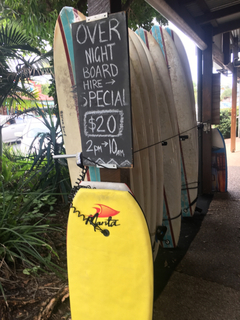 OVER
NIGHT
BOARD
HIRE
SPECIAL
$20
2pm→10am
Manta